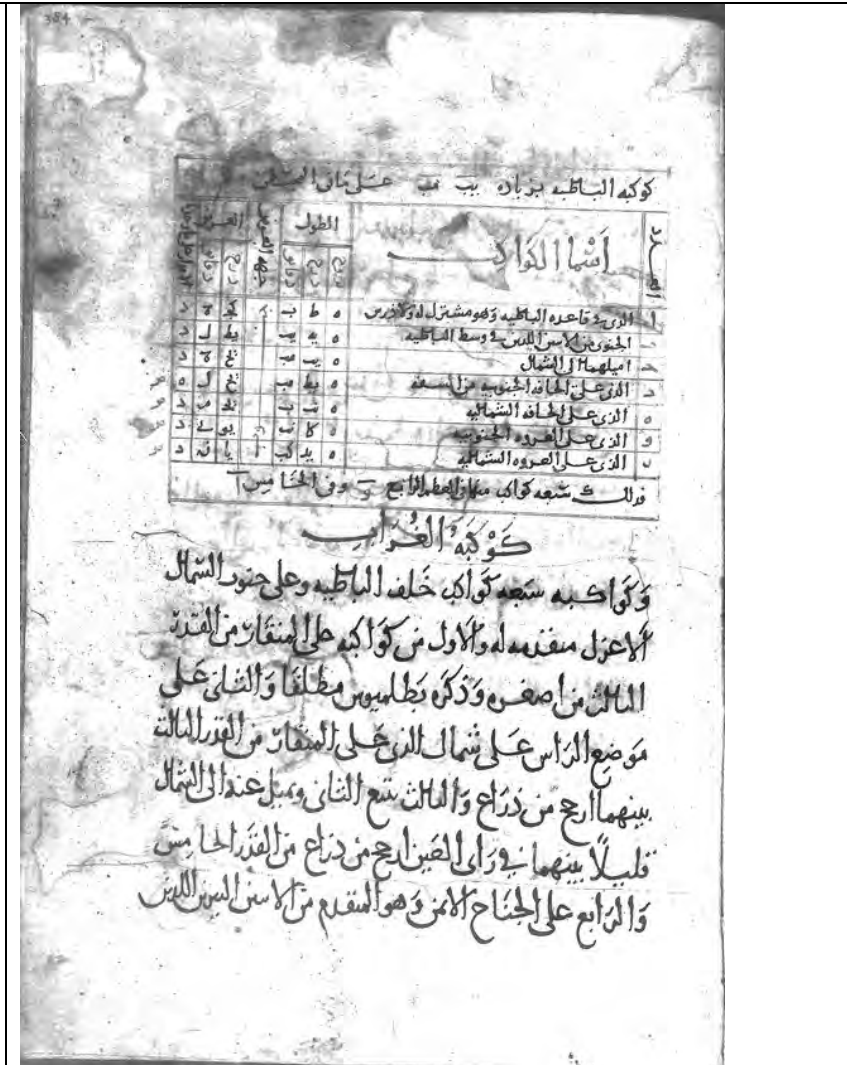 384
كوكبه الباطيه بزياده يب مب على ما فى المجسطى
العدد
أسما الكواكب
الطول
جهه العرض
العرض
بروج درج دقايق درج دقايق
ا الذى فى قاعده الباطيه وهو مشترك له ولا ه ط ب كج ه د
الجنوبى من الاسن اللذين فى وسط الباطيه ه يه يب يط ل د
ج اميلهما الى الشمال ه يب مب يح ه د
د الذى على الحافه الجنوبيه من السعه ه يط مب يح ل ه
ه الذى على الحافه الشماليه ه د
و الذى على العروه الجنوبيه ه كا يو د
ر الذى على العروه الشماليه ه يد كب يا ن د
فذلك سبعه كواكب منها فى العظم الرابع و وفى الخامس ا
كوكبه الغراب
وكواكبه سبعه كواكب خلف الباطيه وعلى جنوب السماك
الاعزل متقدمه له والاول من كواكبه على المنقار من القدر
الثالث من اصغره وذكره بطلميوس مطلقا والثانى على
موضع الراس على شمال الذى على المنقار من القدر الثالث
بينهما ارجح من ذراع والثالث يتبع الثانى ويميل عنه الى الشمال
قليلا بينهما فى راى العين ارجح من ذراع من القدر الخامس
والرابع على الجناح الايمن وهو المتقدم من الاسن النيرين اللذين